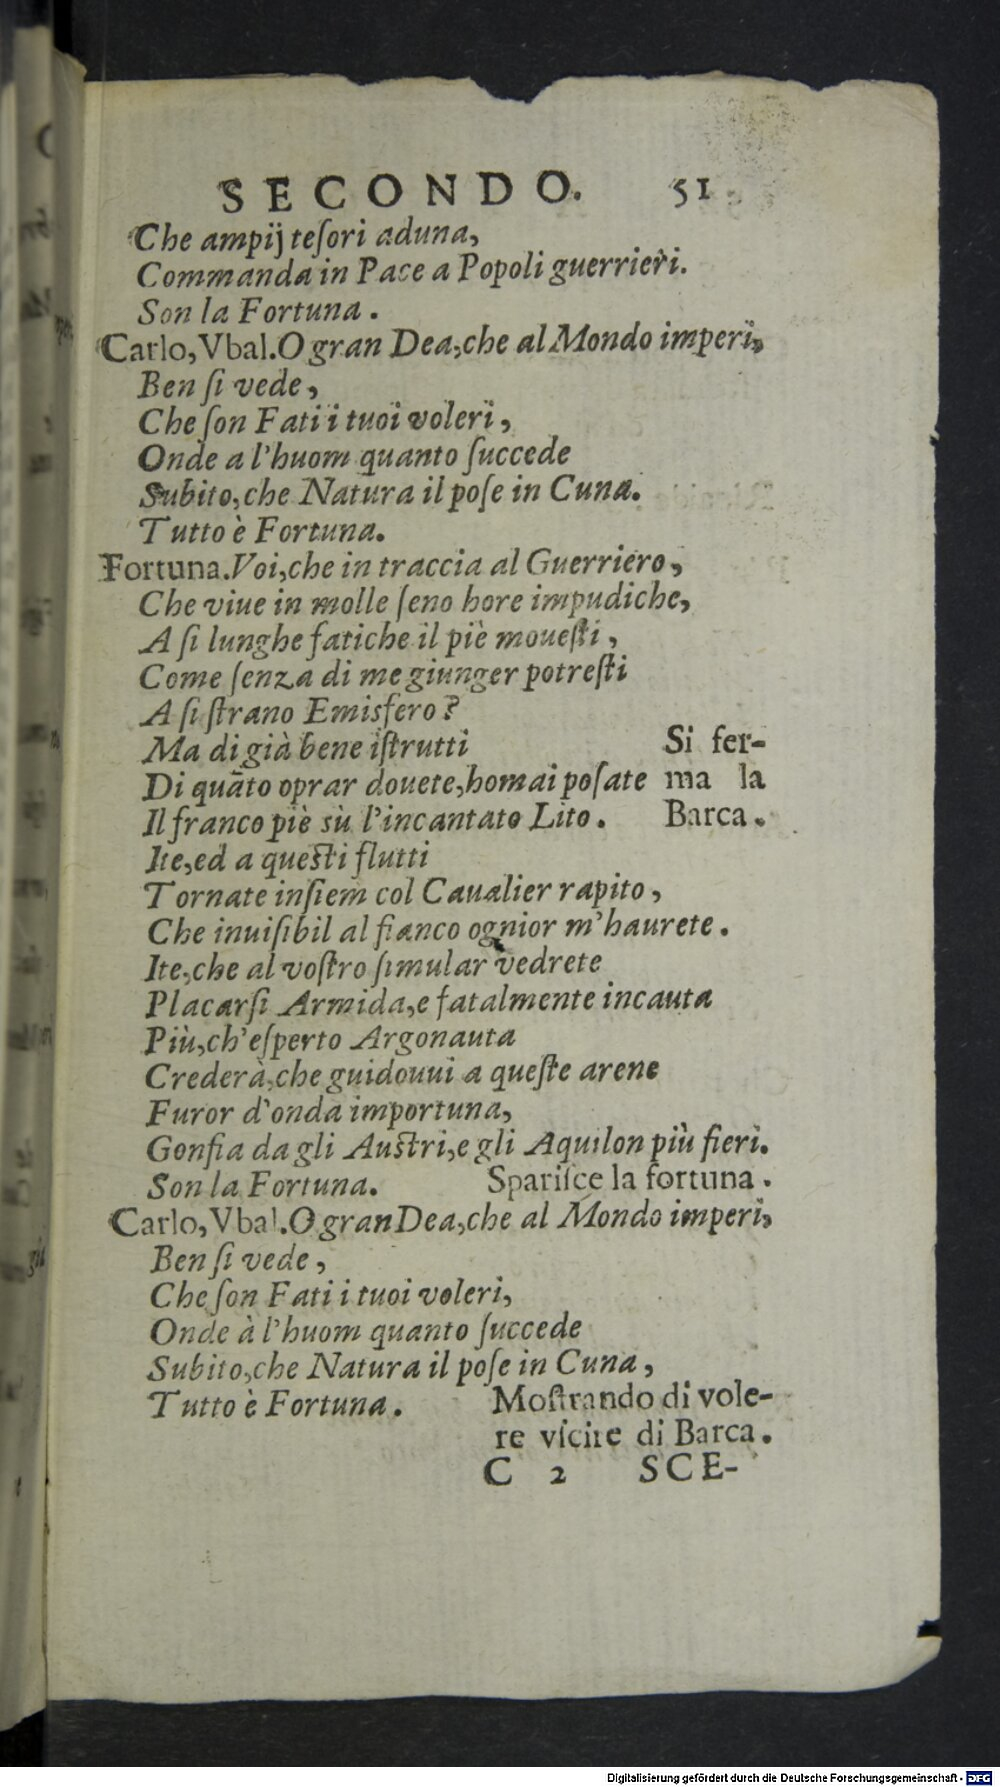 SECONDO. 51
Che ampij teſori aduna,
Commanda in Pace a Popoli guerrieri.
Son la Fortuna.
Carlo, Vbal. O gran Dea, che al Mondo imperi,
Ben ſi vede,
Che ſon Fati i tuoi voleri,
Onde a l'huom quanto ſuccede
Subito, che Natura il poſe in Cuna.
Tutto è Fortuna.
Fortuna. Voi, che in traccia al Guerriero,
Che viue in molle ſeno hore impudiche,
A ſi lunghe fatiche il piè moueſti,
Come ſenza di me giunger potreſti
A ſi ſtrano Emisfero?
Ma di già bene iſtrutti Si fer-
Di quāto oprar douete, homai poſate ma la
Il franco piè sù l'incantato Lito. Barca.
Ite, ed a queſti flutti
Tornate inſiem col Caualier rapito,
Che inuiſibil al fianco ognior m'haurete.
Ite, che al voſtro ſimular vedrete
Placarſi Armida, e fatalmente incauta
Più, ch'eſperto Argonauta
Crederà, che guidouui a queſte arene
Furor d'onda importuna,
Gonfia da gli Auſtri, e gli Aquilon più fieri.
Son la Fortuna. Spariſce la fortuna.
Carlo, Vbal. O gran Dea, che al Mondo imperi,
Ben ſi vede,
Che ſon Fati i tuoi voleri,
Onde à l'huom quanto ſuccede
Subito, che Natura il poſe in Cuna,
Tutto è Fortuna. Moſtrando di vole-
re vſcire di Barca.
C 2 SCE-
Digitalisierung gefördert durch die Deutsche Forschungsgemeinschaft - DFG